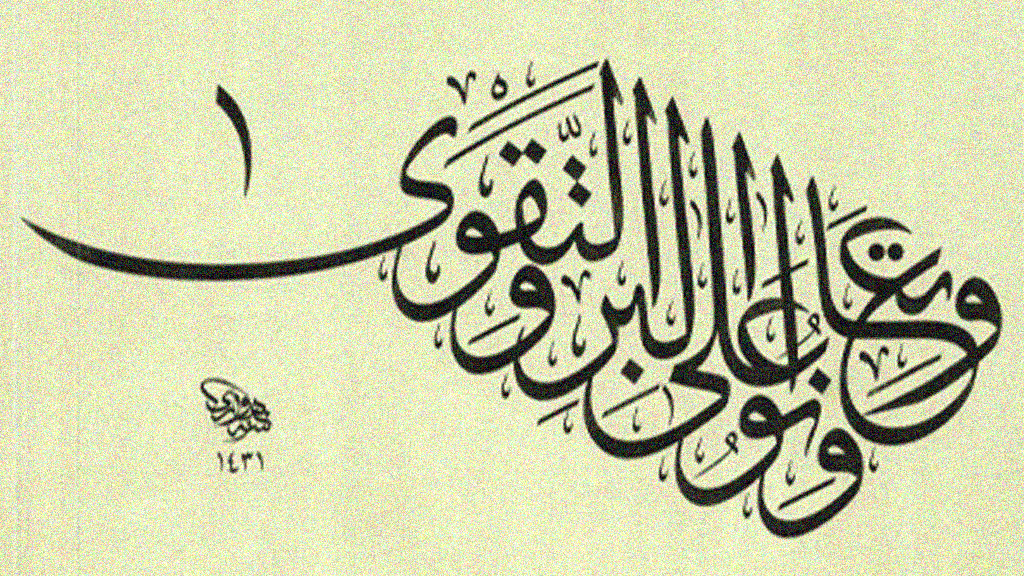 وتعاونوا على البر والتقوى
١٤٣١